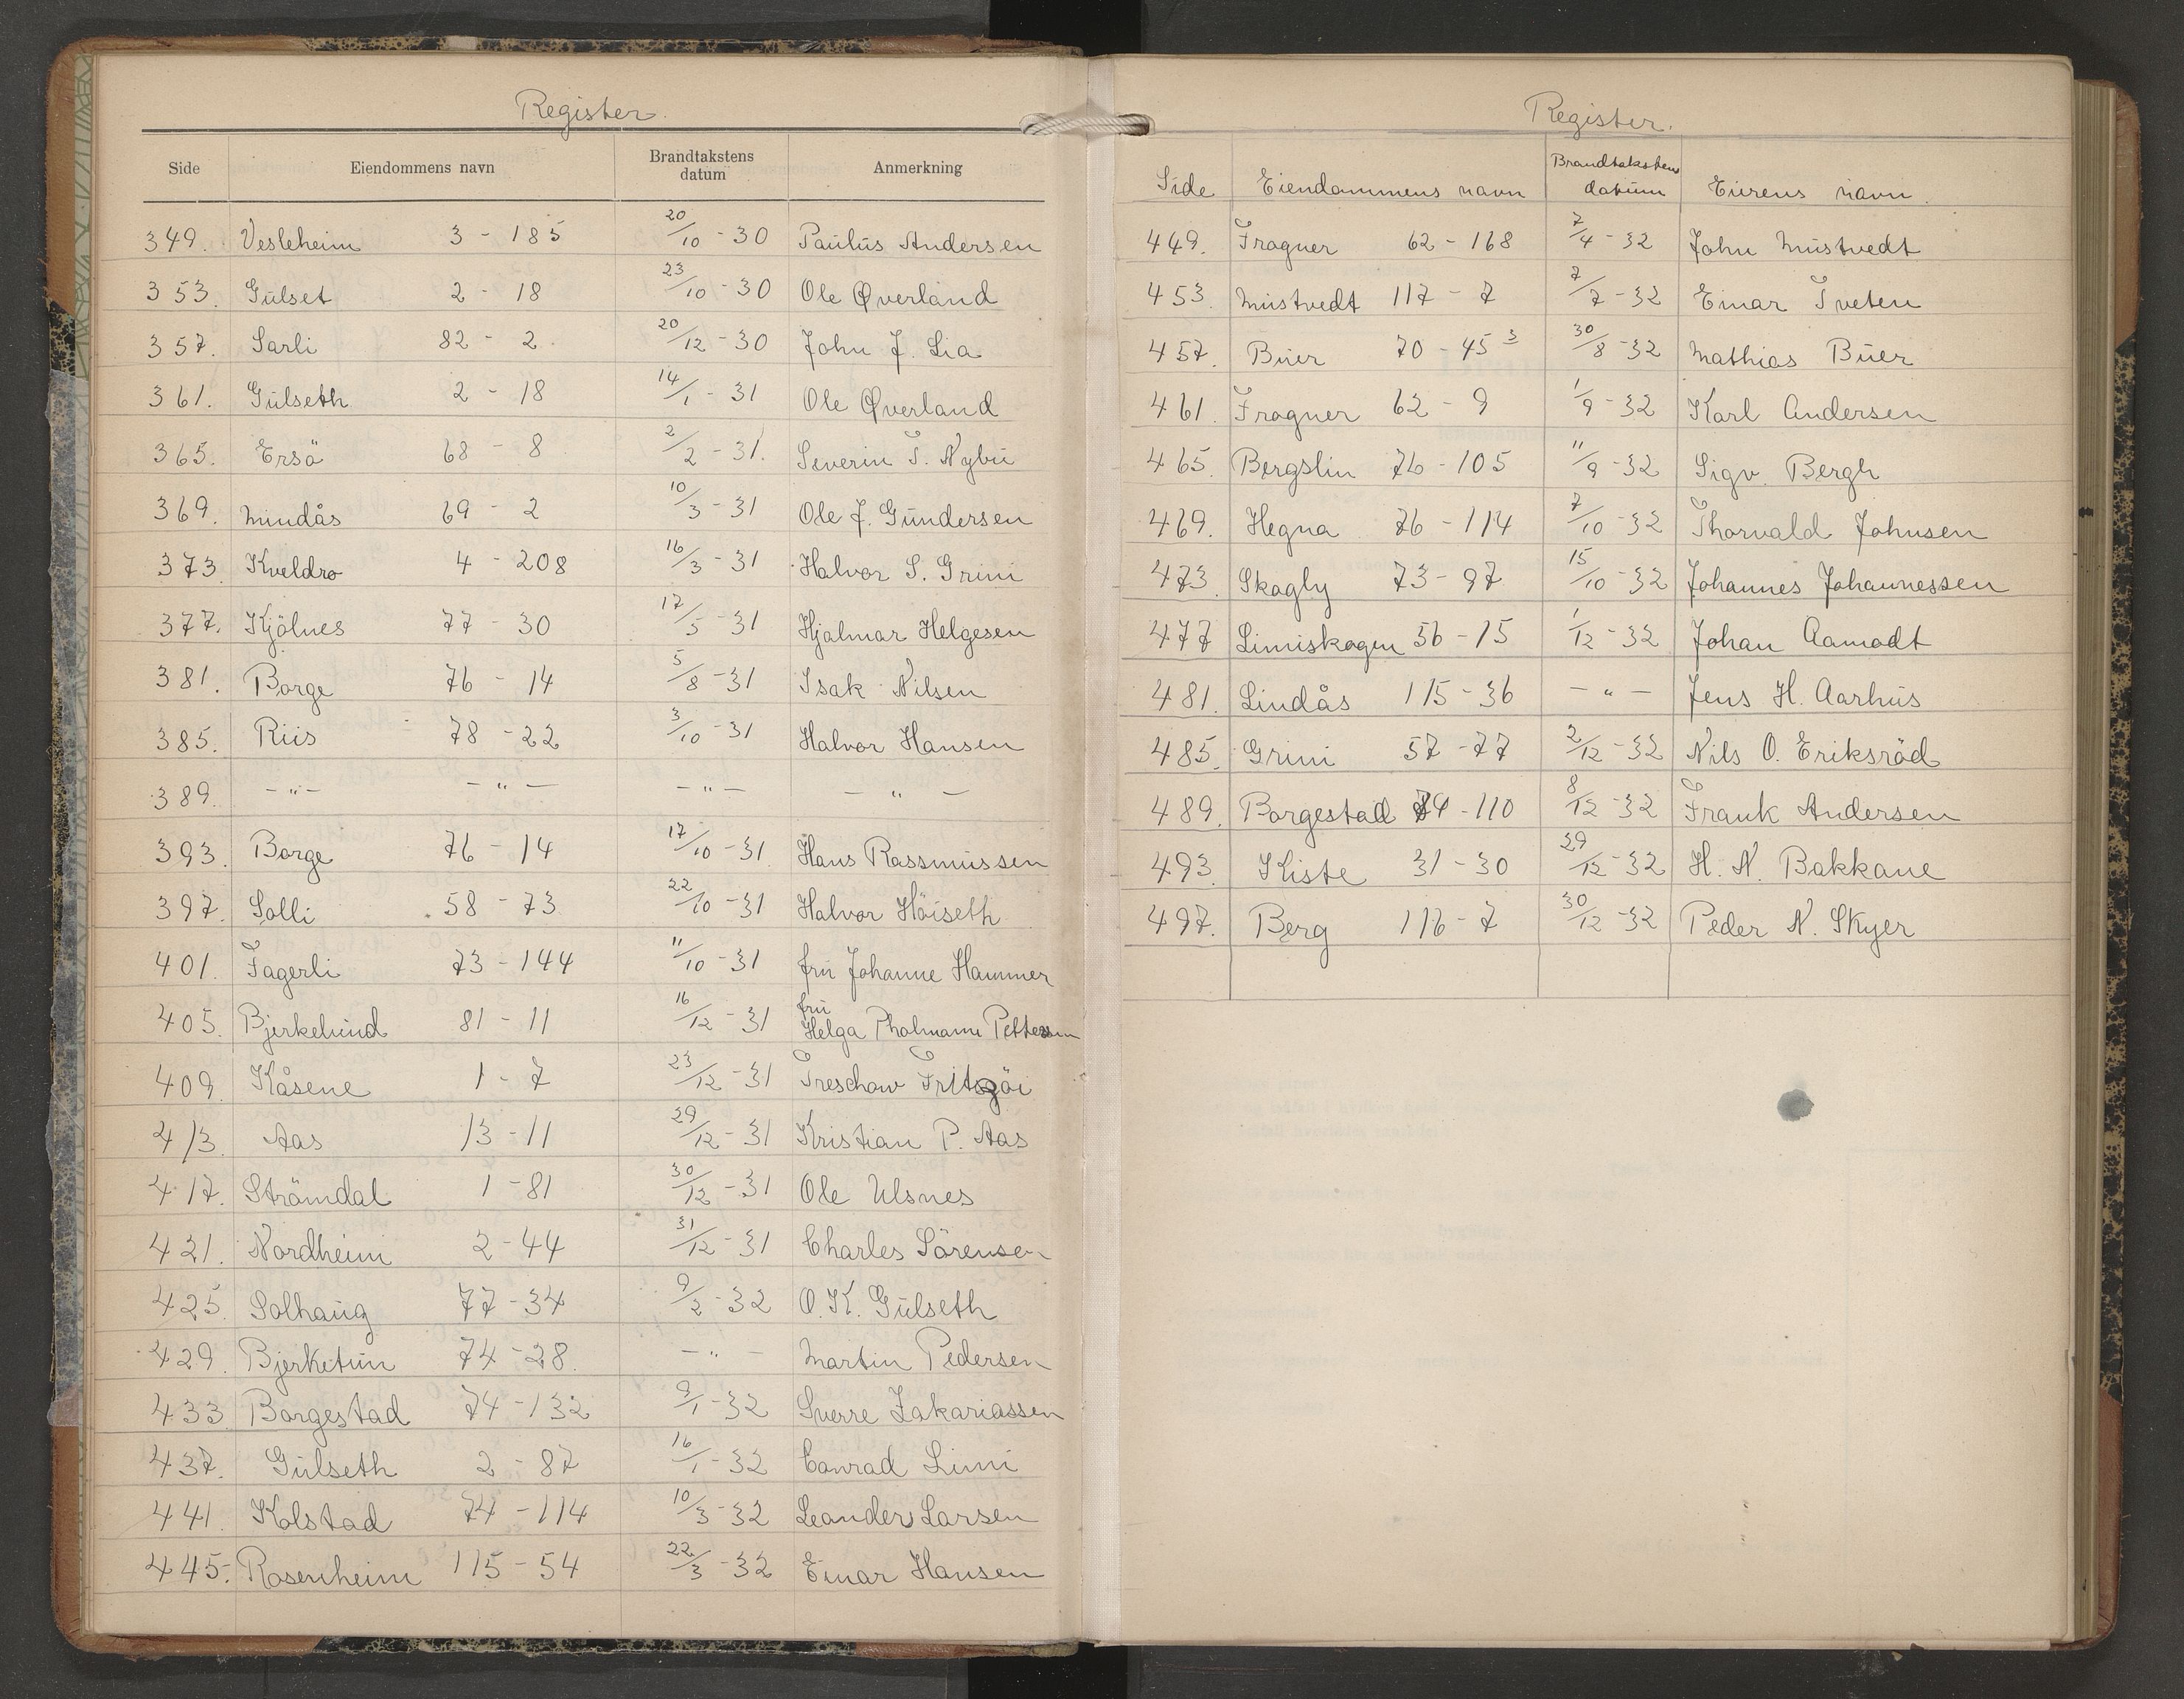 Register.
Side Eiendommens navn Brandtakstens datum Anmerkning
349. Vesleheim 3 - 185 20/10 - 30 Paulus Andersen
353. Gulset 2 - 18 23/10 - 30 Ole Øverland
357. Sarli 82 - 2. 20/12 - 30 John J. Lia
361. Gulseth 2 - 18 14/1 - 31 Ole Øverland
365. Ersö 68 - 8 2/2 - 31. Severin T. Nybu
369. Mindås 69 - 2 10/3 - 31 Ole J. Gundersen
373. Kveldro 4 - 208 16/3 - 31 Halvor S. Grini
377. Kjölnes 77 - 30 17/5 - 31 Hjalmar Helgesen
381. Borge 76 - 14 5/8 - 31 Isak Nilsen
385. Riis 78 - 22 3/10 - 31 Halvor Hansen
389. - " - - " - - " - - " -
393. Borge 76 - 14 17/10 - 31 Hans Rassmussen
397. Solli 58 - 73 22/10 - 31 Halvor Höiseth
401. Fagerli 73 - 144 11/10 - 31 fru Johanne Hammer
405. Bjerkelund 81 - 11 16/12 - 31 fru Helga Pholmann Pettersen
409. Kåsene 1 - 7 23/12 - 31 Treschow Fritzöi
413. Aas 13 - 11 29/12 - 31 Kristian P. Aas
417. Strömdal 1 - 81 30/12 - 31 Ole Ulsnes
421. Nordheim 2 - 44 31/12 - 31 Charles Sörensen
425. Solhaug 77 - 34 9/2 - 32 O. K. Gulseth
429. Bjerketun 74 - 28. - " - Martin Pedersen
433 Borgestad 74 - 132 9/1 - 32 Sverre Zakariassen
437. Gulseth 2 - 87 16/1 - 32 Conrad Limi
441. Kolstad 74 - 114 10/3 - 32 Leander Larsen
445. Rosenheim 115 - 54 22/3 - 32 Einar Hansen
Register.
Side Eiendommens navn Brandtakstens datum Eierens navn.
449. Frogner 62 - 168 7/4 - 32 John Mustvedt
453. Mustvedt 117 - 7 7/7 - 32 Einar Tveten
457. Buer 70 - 45 3 30/8 - 32 Mathias Buer
461. Frogner 62 - 9 1/9 - 32 Karl Andersen
465. Bergslin 76 - 105 11/9 - 32 Sigv. Bergh
469. Hegna 76 - 114 7/10 - 32 Thorvald Johnsen
473. Skogly 73 - 97 15/10 - 32 Johannes Johannessen
477 Limiskogen 56 - 15 1/12 - 32 Johan Aamodt
481. Lindås 115 - 36 - " - Jens H. Aarhus
485. Grini 57 - 77 2/12 - 32 Nils O. Eriksröd
489. Borgestad 74 - 110 8/12 - 32 Frank Andersen
493. Kiste 31 - 30 29/12 - 32 H. N. Bakkane
497. Berg 116 - 7 30/12 - 32 Peder N. Skyer